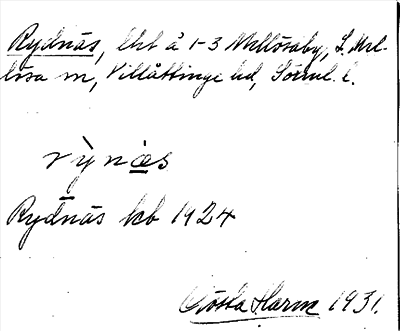 Rydnäs, lht å 1-3 Mellösaby, L. Mel-
lösa sn, Villåttinge hd, Sörml. l.
rỳnäs
Rydnäs kb 1924
Gösta Harm 1931.